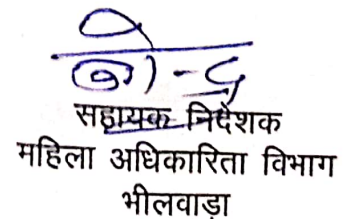 सहायक निदेशक
महिला अधिकारिता विभाग
भीलवाड़ा